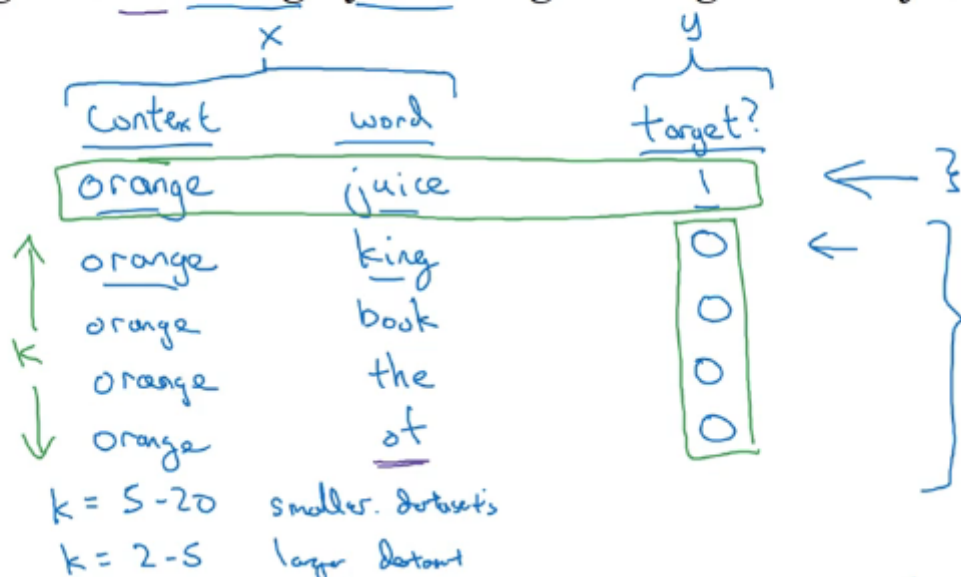 x y
Context word target?
orange juice 1
orange king 0
orange book 0
k
orange the 0
orange of 0
k = 5-20 smaller datasets
k = 2-5 larger dataset